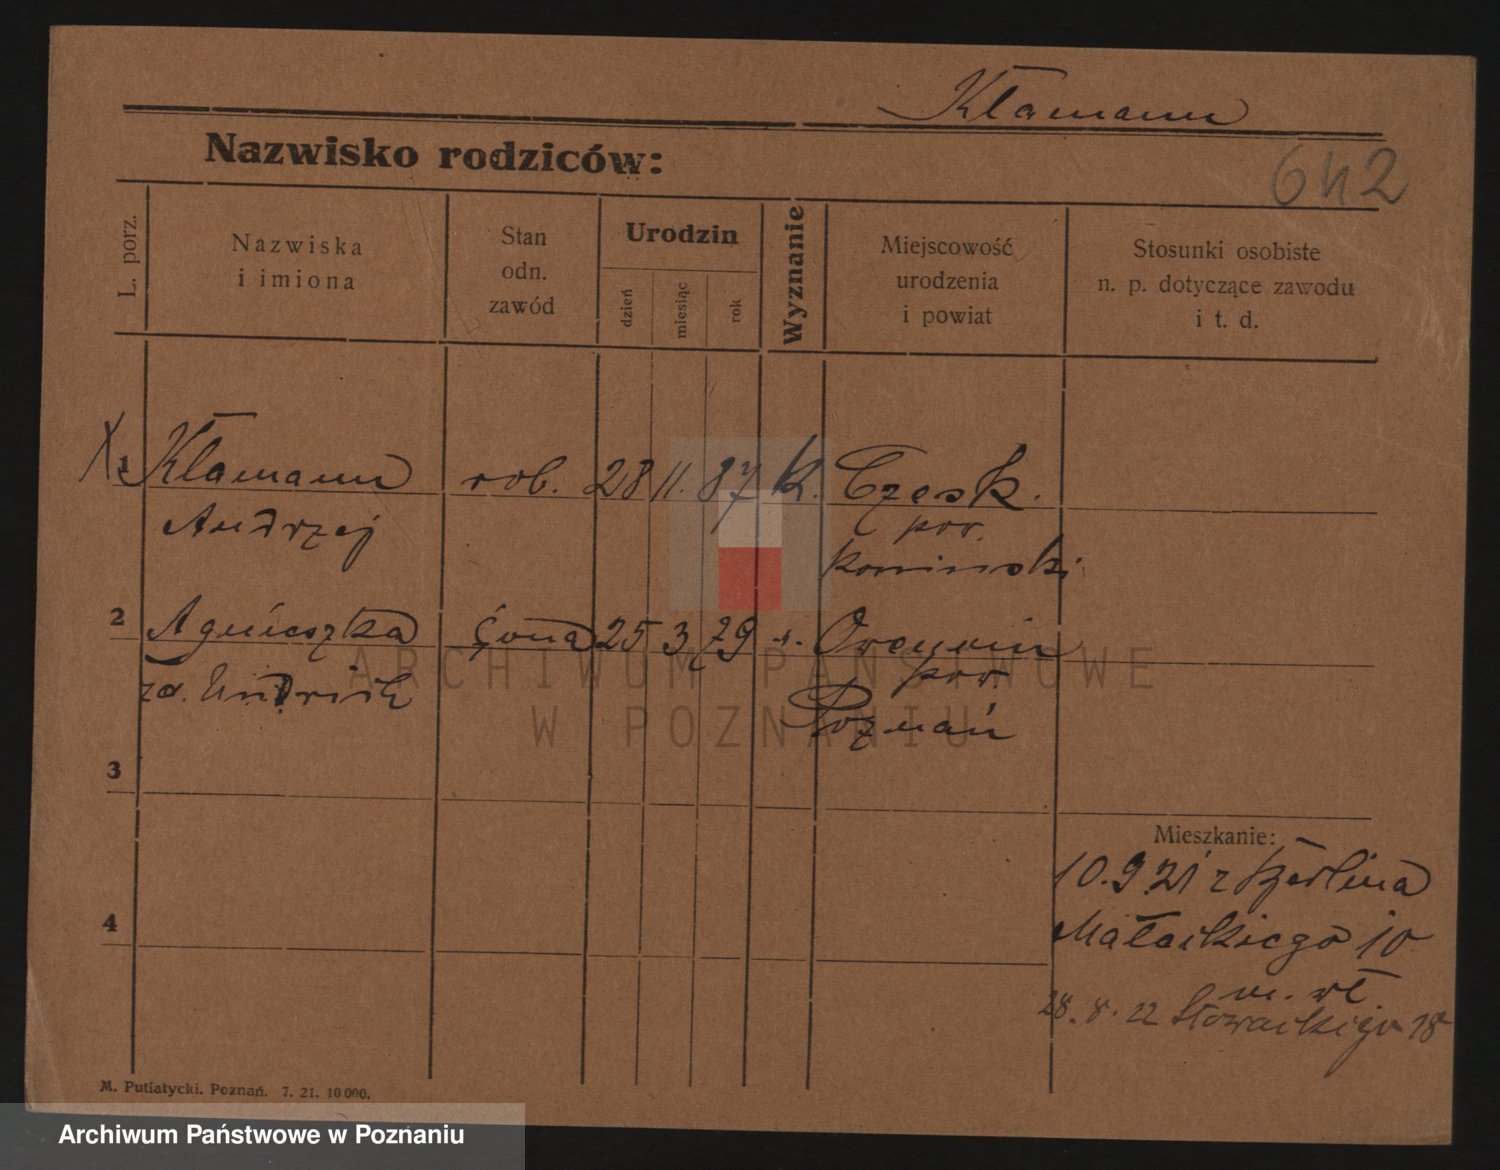 Kłamann
Nazwisko rodziców:
642
L. porz.
Nazwiska
i imiona
Stan
odn.
zawód
Urodzin
dzień
miesiąc
rok
Wyznanie
Miejscowość
urodzenia
i powiat
Stosunki osobiste
n. p. dotyczące zawodu
i t. d.
X 1 Kłamann rob. 28 11. 87 K. Czesk.
Andrzej pow.
koniński
2 Agnieszka żona 25 3 79
zd. pow.
Poznań
3
Mieszkanie:
10.9.21 z Berlina
4
Małeckiego 10
m. wł.
28. 8. 22 Słowackiego 18
M. Putiatycki. Poznań. 7. 21. 10 000.
ARCHIWUM PAŃSTWOWE
W POZNANIU
Archiwum Państwowe w Poznaniu